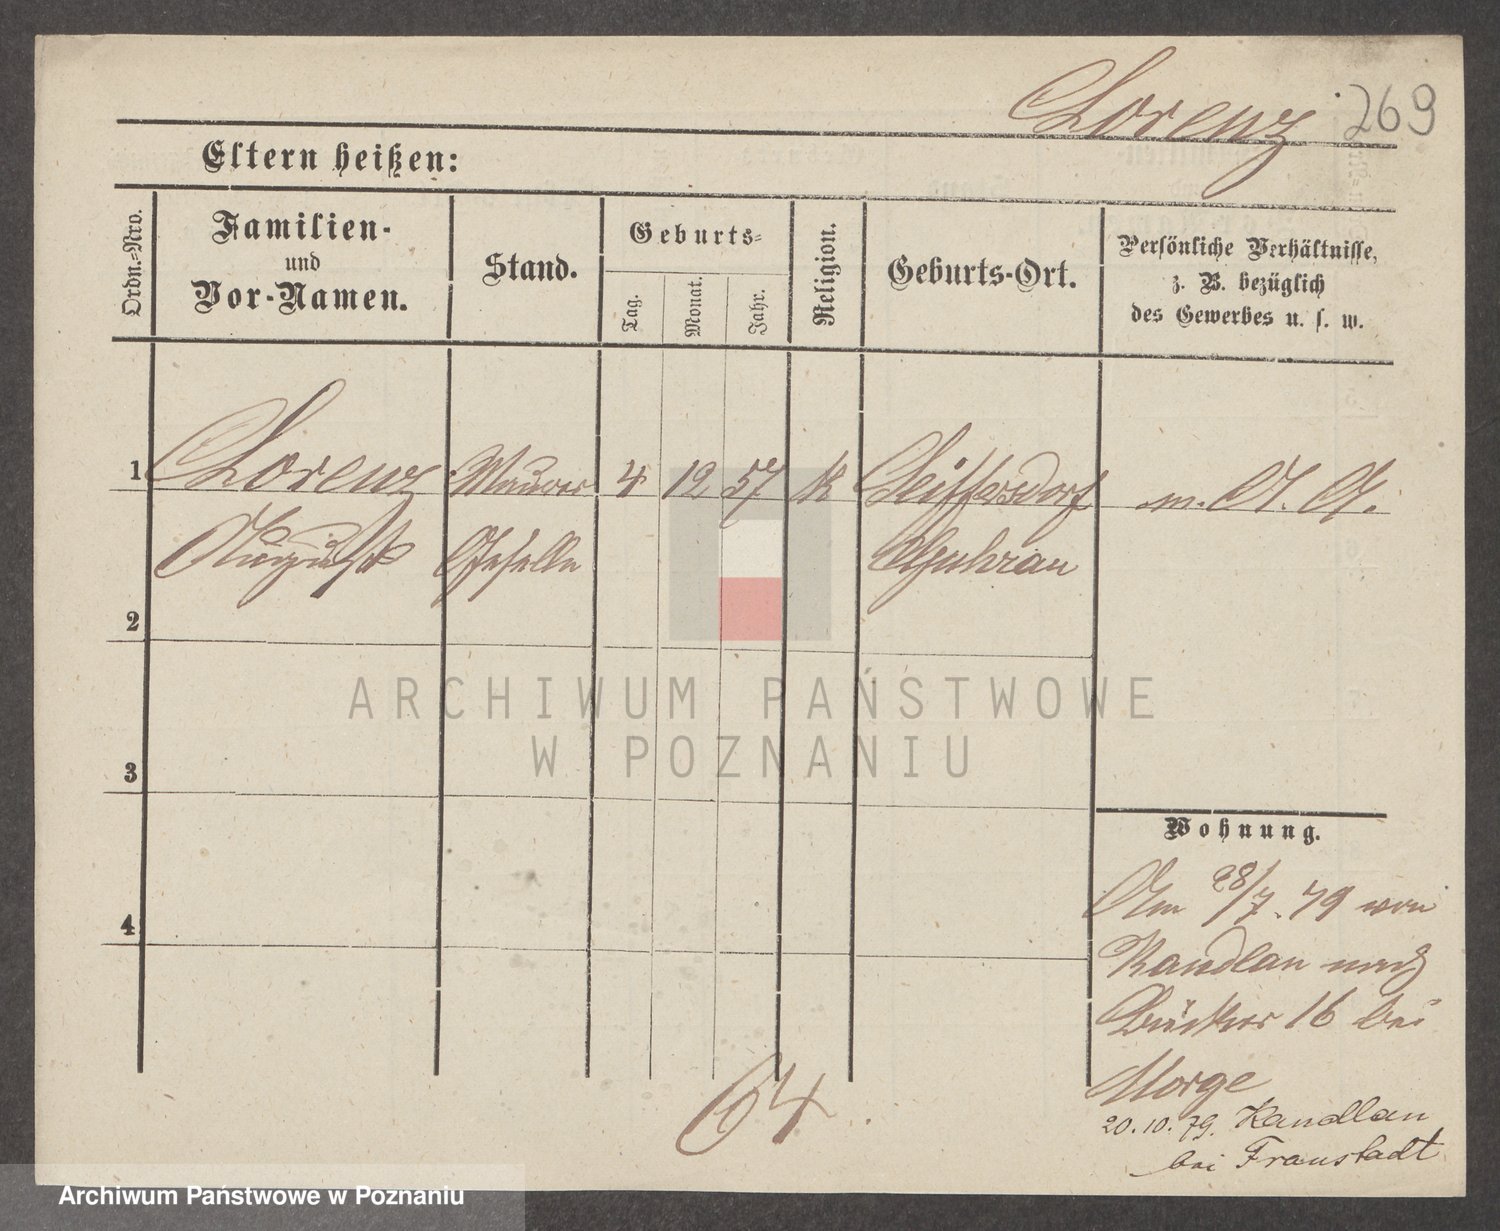 Lorenz 269
Eltern heißen:
Ordn.=Nro.
Familien-
und
Vor-Namen.
Stand.
Geburts=
Tag.
Monat.
Jahr.
Religion.
Geburts-Ort.
Persönliche Verhältnisse,
z. B. bezüglich
des Gewerbes u. s. w.
1 Lorenz Maurer 4 12 57 k Seiffersdorf m. A. A.
August Geselle Guhrau
2
3
4
ARCHIWUM PAŃSTWOWE
W POZNANIU
Wohnung.
Am 28/7. 79 von
Kandlau nach
16 bei
Morge
20.10.79. Kandlau
bei Fraustadt
64.
Archiwum Państwowe w Poznaniu